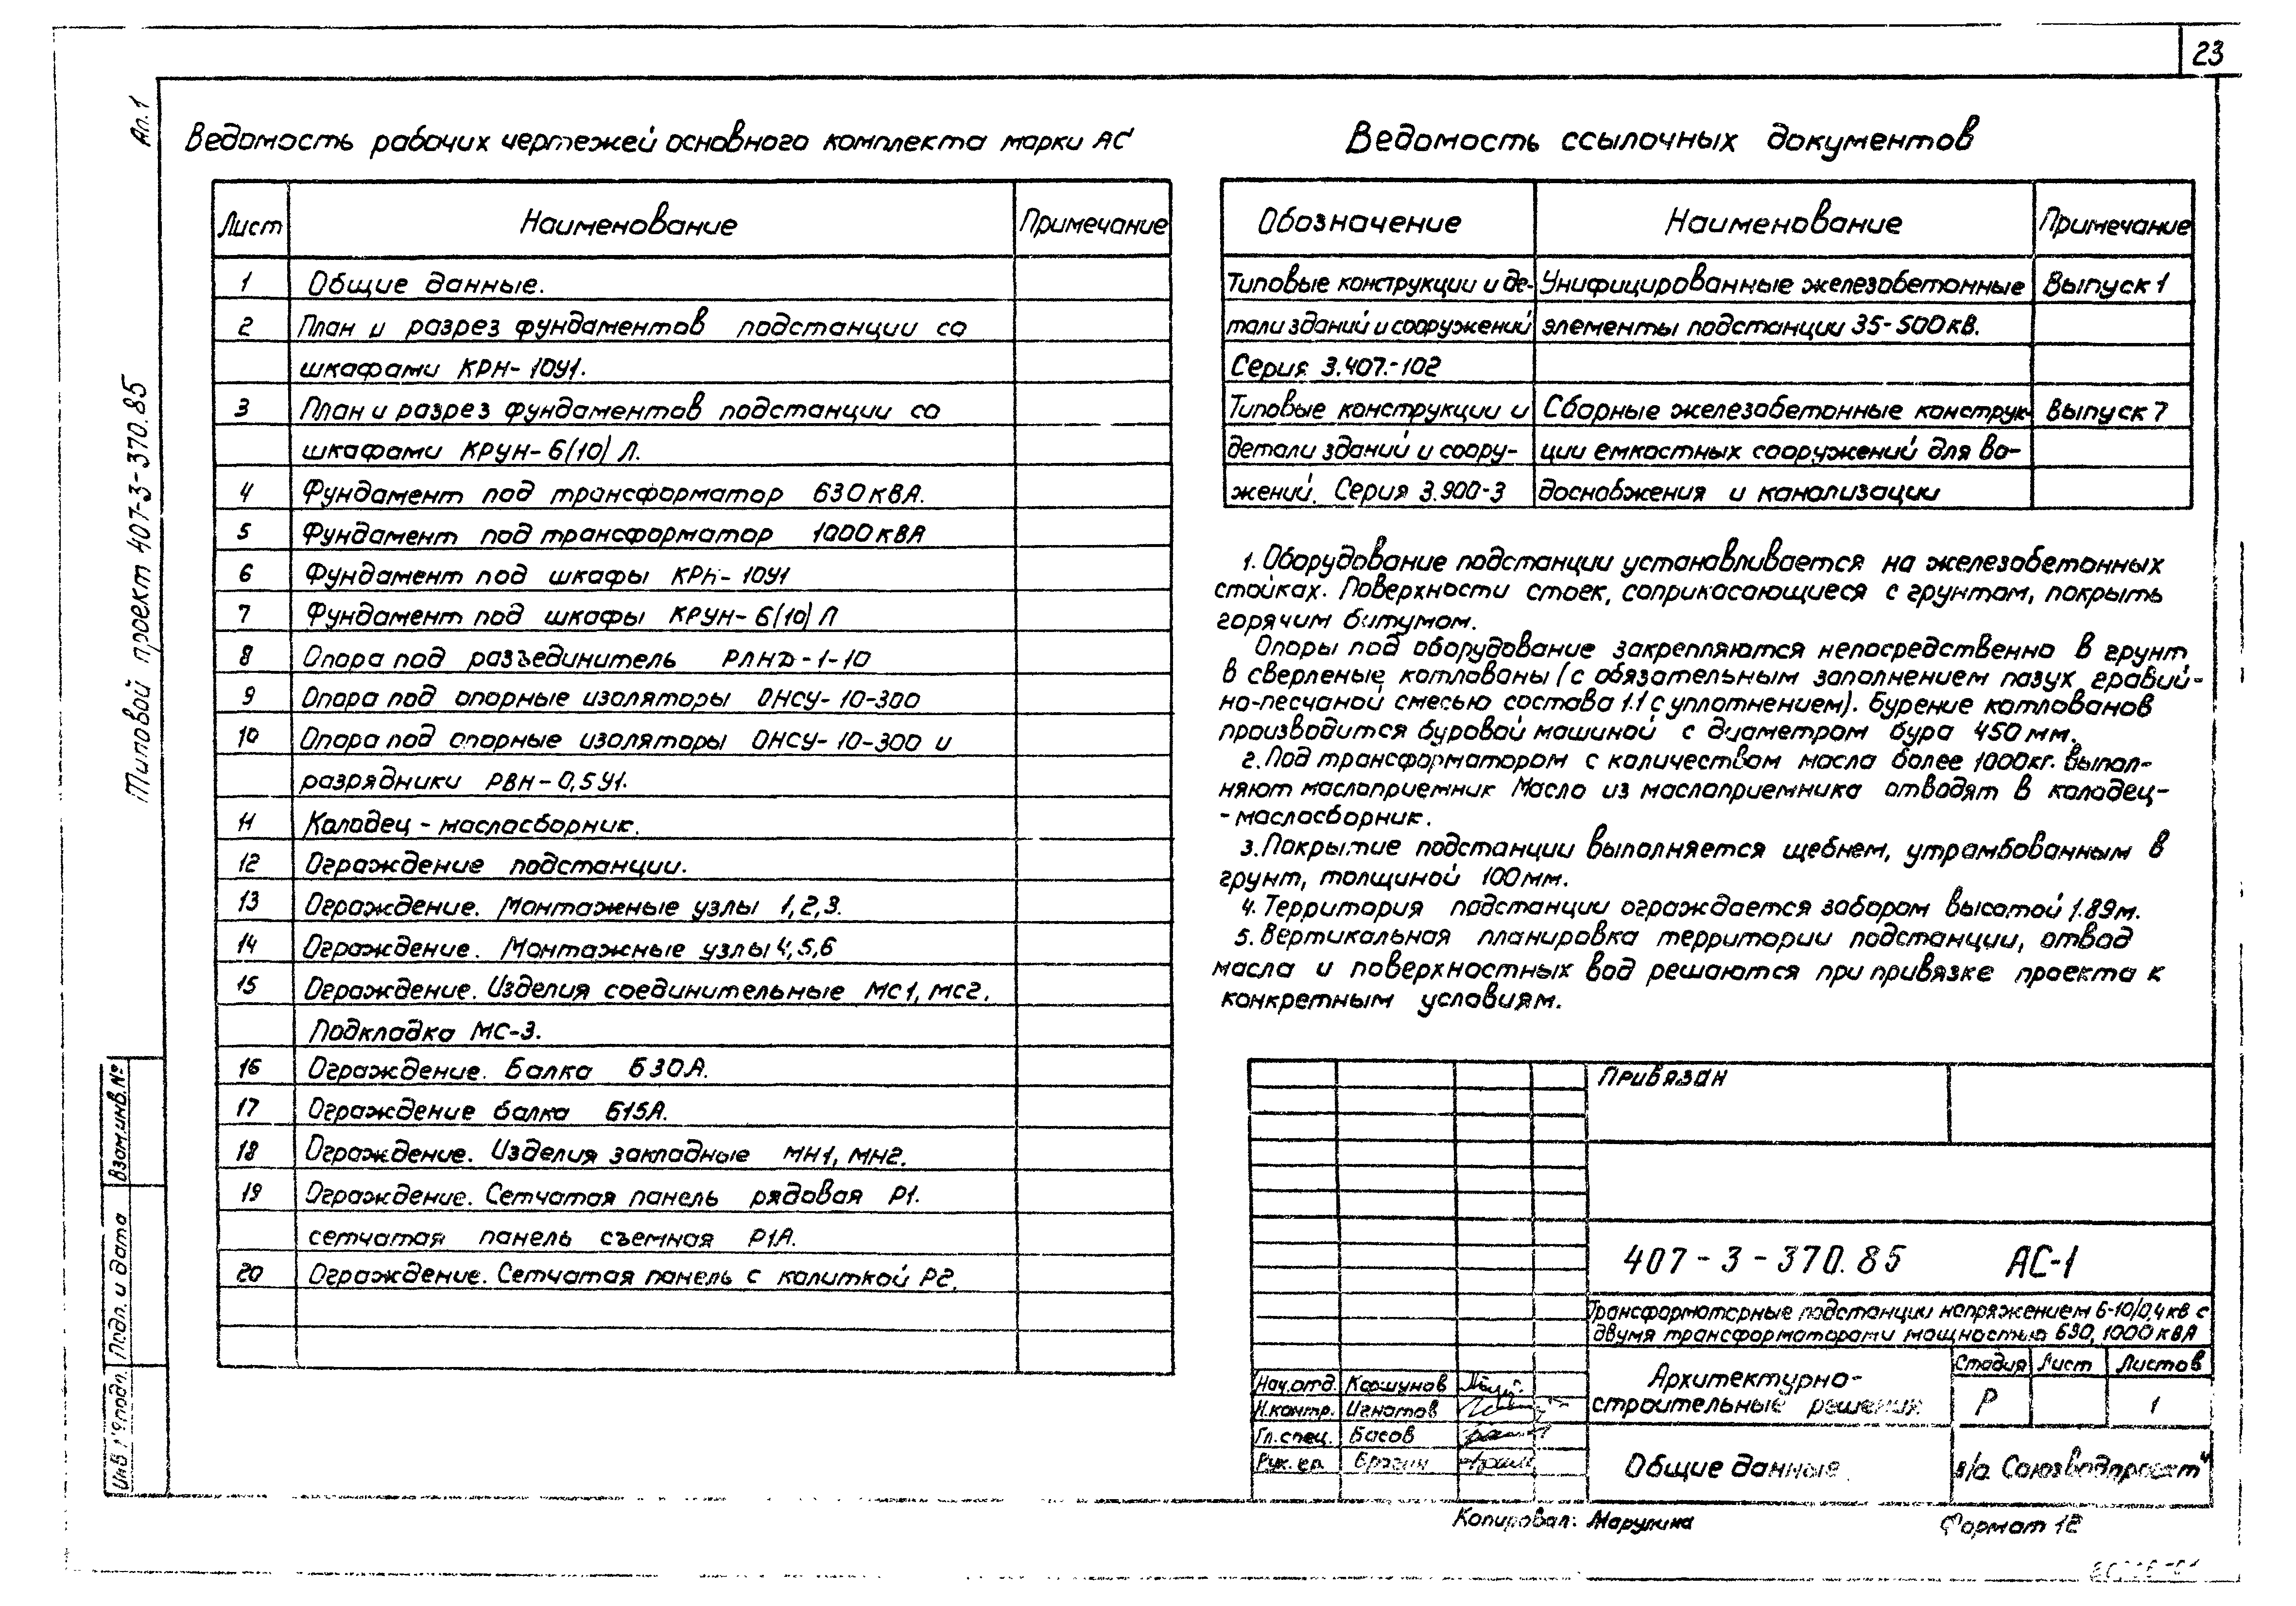 23
Ал. 1
Типовой проект 407-3-370.85
Ведомость рабочих чертежей основного комплекта марки АС
Лист Наименование Примечание
1 Общие данные.
2 План и разрез фундаментов подстанции со
шкафами КРН-10У1.
3 План и разрез фундаментов подстанции со
шкафами КРУН-6(10) Л.
4 Фундамент под трансформатор 630 кВА.
5 Фундамент под трансформатор 1000 кВА
6 Фундамент под шкафы КРН-10У1
7 Фундамент под шкафы КРУН-6(10) Л
8 Опора под разъединитель РЛНД-1-10
9 Опора под опорные изоляторы ОНСУ-10-300
10 Опора под опорные изоляторы ОНСУ-10-300 и
разрядники РВН-0,5У1.
11 Колодец - маслосборник.
12 Ограждение подстанции.
13 Ограждение. Монтажные узлы 1,2,3.
14 Ограждение. Монтажные узлы 4,5,6
15 Ограждение. Изделия соединительные МС1, МС2.
Подкладка МС-3.
16 Ограждение. Балка Б30А.
17 Ограждение балка Б15А.
18 Ограждение. Изделия закладные МН1, МН2.
19 Ограждение. Сетчатая панель рядовая Р1.
сетчатая панель съемная Р1А.
20 Ограждение. Сетчатая панель с калиткой Р2.
Ведомость ссылочных документов
Обозначение Наименование Примечание
Типовые конструкции и де- Унифицированные железобетонные Выпуск 1
тали зданий и сооружений элементы подстанции 35-500 кВ.
Серия 3.407.-102
Типовые конструкции и Сборные железобетонные конструк- Выпуск 7
детали зданий и соору- ции емкостных сооружений для во-
жений. Серия 3.900-3 доснабжения и канализации
1. Оборудование подстанции устанавливается на железобетонных
стойках. Поверхности стоек, соприкасающиеся с грунтом, покрыть
горячим битумом.
Опоры под оборудование закрепляются непосредственно в грунт
в сверленые котлованы (с обязательным заполнением пазух гравий-
но-песчаной смесью состава 1.1 с уплотнением). Бурение котлованов
производится буровой машиной с диаметром бура 450 мм.
2. Под трансформатором с количеством масла более 1000кг. выпол-
няют маслоприемник Масло из маслоприемника отводят в колодец-
-маслосборник.
3. Покрытие подстанции выполняется щебнем, утрамбованным в
грунт, толщиной 100 мм.
4. Территория подстанции ограждается забором высотой 1.89м.
5. Вертикальная планировка территории подстанции, отвод
масла и поверхностных вод решаются при привязке проекта к
конкретным условиям.
Привязан
407-3-370.85 АС-1
Трансформаторные подстанции напряжением 6-10/0,4 кВ с
двумя трансформаторами мощностью 630, 1000 кВА
Архитектурно-
строительные решения
Стадия Лист Листов
Р 1
Нач.отд. Коршунов
Н.контр. Игнатов
Гл.спец. Басов
Рук.гр.
Общие данные.
в/о Союзводпроект"
Копировал: Марулина Формат 12
Взам.инв.№
Подп. и дата
Инв.№ подл.